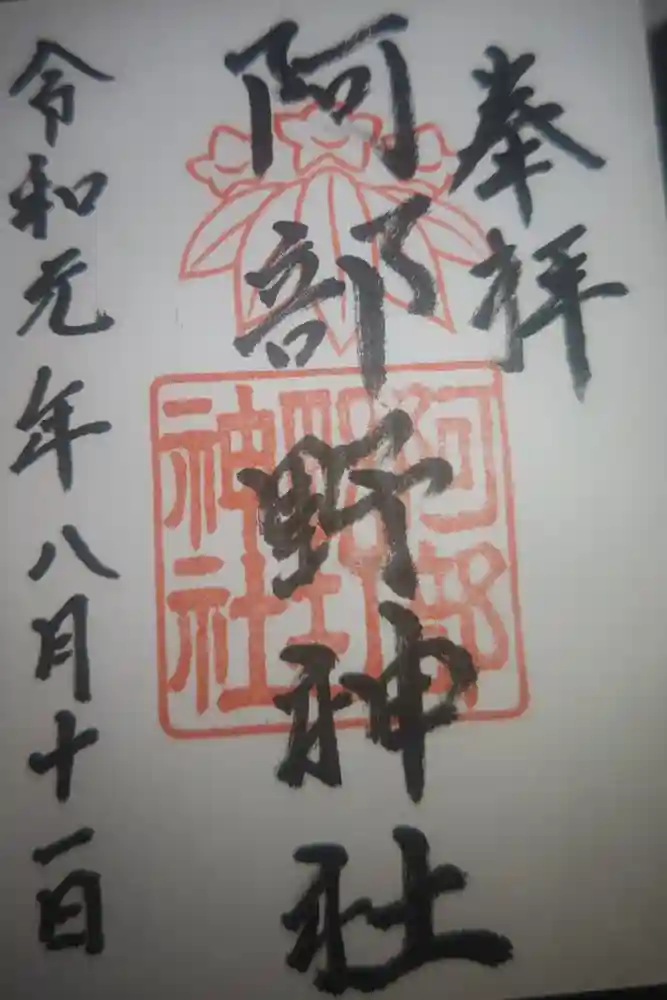 奉拝
阿部野神社
阿部野神社
令和元年八月十一日